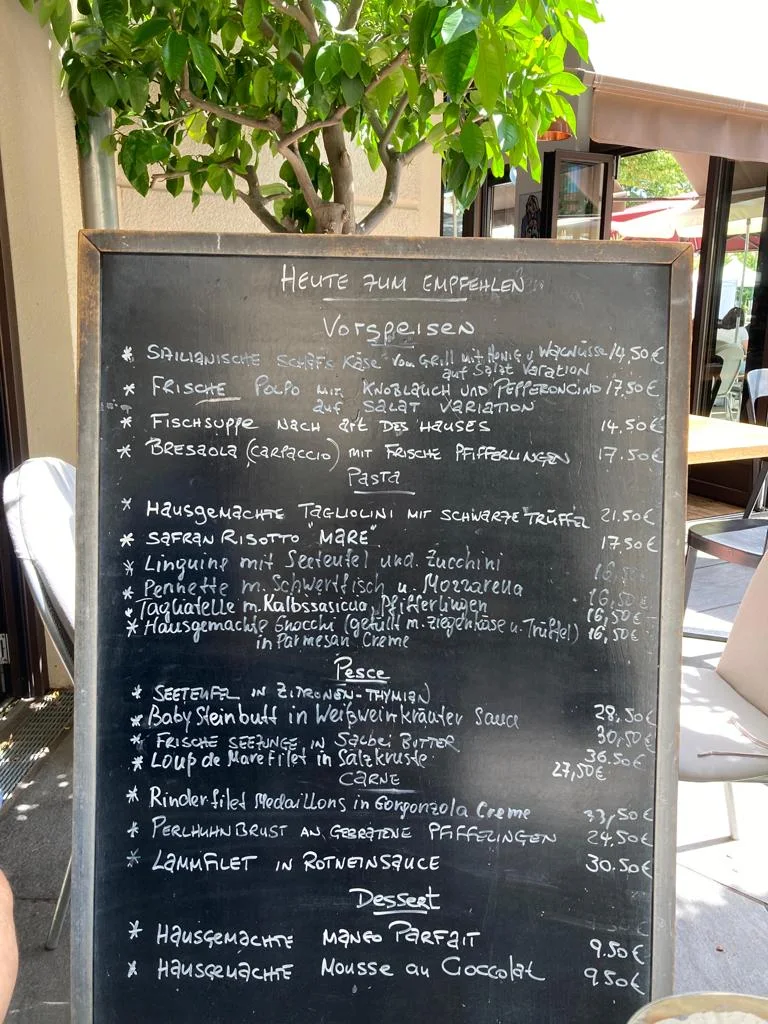 HEUTE ZUM EMPFEHLEN
Vorspeisen
* SAILIANISCHE SCHAFS KÄSE VOM GRILL mit Honig u WALNÜSSE 14,50€
auf Salat Variation
* FRISCHE POLPO mit KNOBLAUCH UND PEPPERONCINO 17,50€
auf SALAT VARIATION
* FISCHSUPPE NACH ART DES HAUSES 14.50€
* BRESAOLA (CARPACCIO) MIT FRISCHE PFIFFERLINGEN 17.50€
Pasta
* HAUSGEMACHTE TAGLIOLINI MIT SCHWARZE TRÜFFEL 21.50€
* SAFRAN RISOTTO "MARE" 17,50€
* Linguine mit Seeteufel und Zucchini 16,50€
* Pennette m. Schwertfisch u. Mozzarella 16,50€
* Tagliatelle m. Kalbssasicua, Pfifferlingen 16,50€
* Hausgemachte Gnocchi (gefüllt m. Ziegenkäse u. Trüffel) 16,50€
in Parmesan Creme
Pesce
* SEETEUFEL IN ZITRONEN-THYMIAN 28,50€
* Baby Steinbutt in Weißweinkräuter Sauce 30,50€
* FRISCHE SEEZUNGE IN Salbei BUTTER 36.50€
* Loup de Mare Filet in Salzkruste 27,50€
CARNE
* Rinderfilet Medaillons in Gorgonzola Creme 33,50€
* PERLHUHNBRUST AN GEBRATENE PFIFFELINGEN 24,50€
* LAMMFILET IN ROTWEINSAUCE 30.50€
Dessert
* HAUSGEMACHTE MANGO PARFAIT 9.50€
* HAUSGEMACHTE Mousse au Cioccolat 9,50€